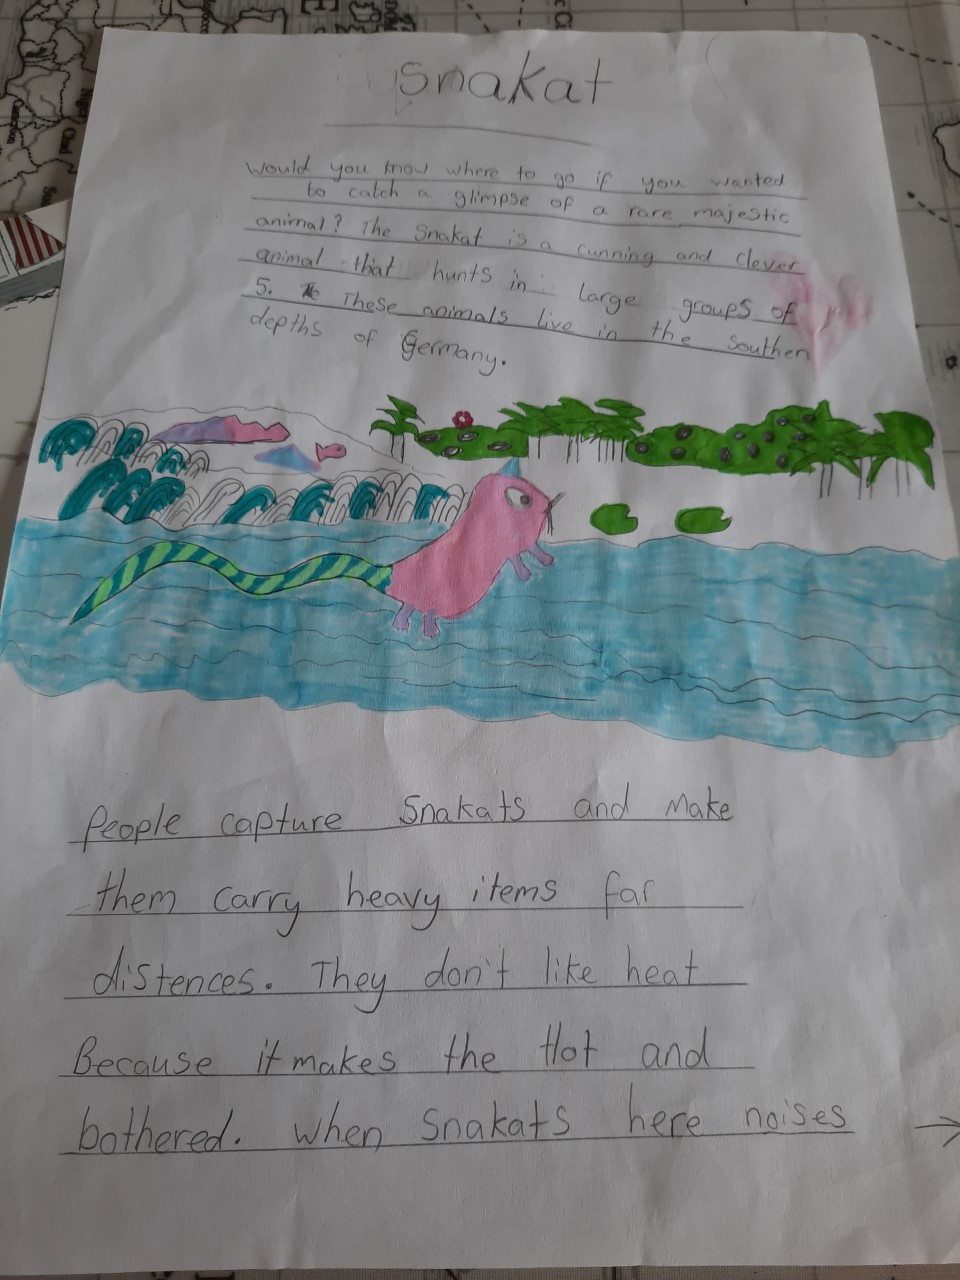 Snakat
Would you know where to go if you wanted
to catch a glimpse of a rare majestic
animal? The Snakat is a cunning and clever
animal that hunts in large groups of
5. These animals live in the Southen
depths of Germany.
People capture Snakats and make
them carry heavy items far
distences. They don't like heat
Because it makes the Hot and
bothered. When Snakats here noises